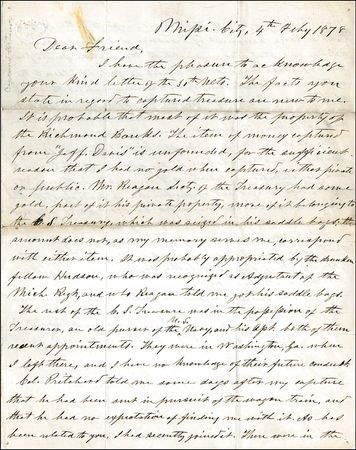 Missi. City, 4th Feby 1878
Dear Friend,
I have the pleasure to acknowledge
your kind letter of the 30th ulto. The facts you
state in regard to captured treasure are new to me.
It is probable that most of it was the property of
the Richmond Banks. The item of money captured
from "Jeff. Davis" is unfounded, for the sufficient
reason that I had no gold when captured, either private
or public. Mr. Reagan Secty. of the Treasury had some
gold, part of it his private property, more of it belonging to
the C. S. Treasury, which was seized in his saddle bags; the
amount does not, as my memory serves me, correspond
with either item. It was probably appropriated by the drunken
fellow Hudson, who was recognized as Adjutant of the
Mich. Regt, and who Reagan told me got his saddle bags.
The rest of the C. S. Treasure was in the possession of the
Treasurer, an old purser of the Navy, and his asst. both of them
recent appointments. They were in Washington, Ga. when
I left there, and I have no knowledge of their future conduct.
Col. Pritchard told me some days after my capture
that he had been sent in pursuit of the wagon train, and
that he had no expectation of finding me with it. As has
been related to you, I had recently joined it. There were in the